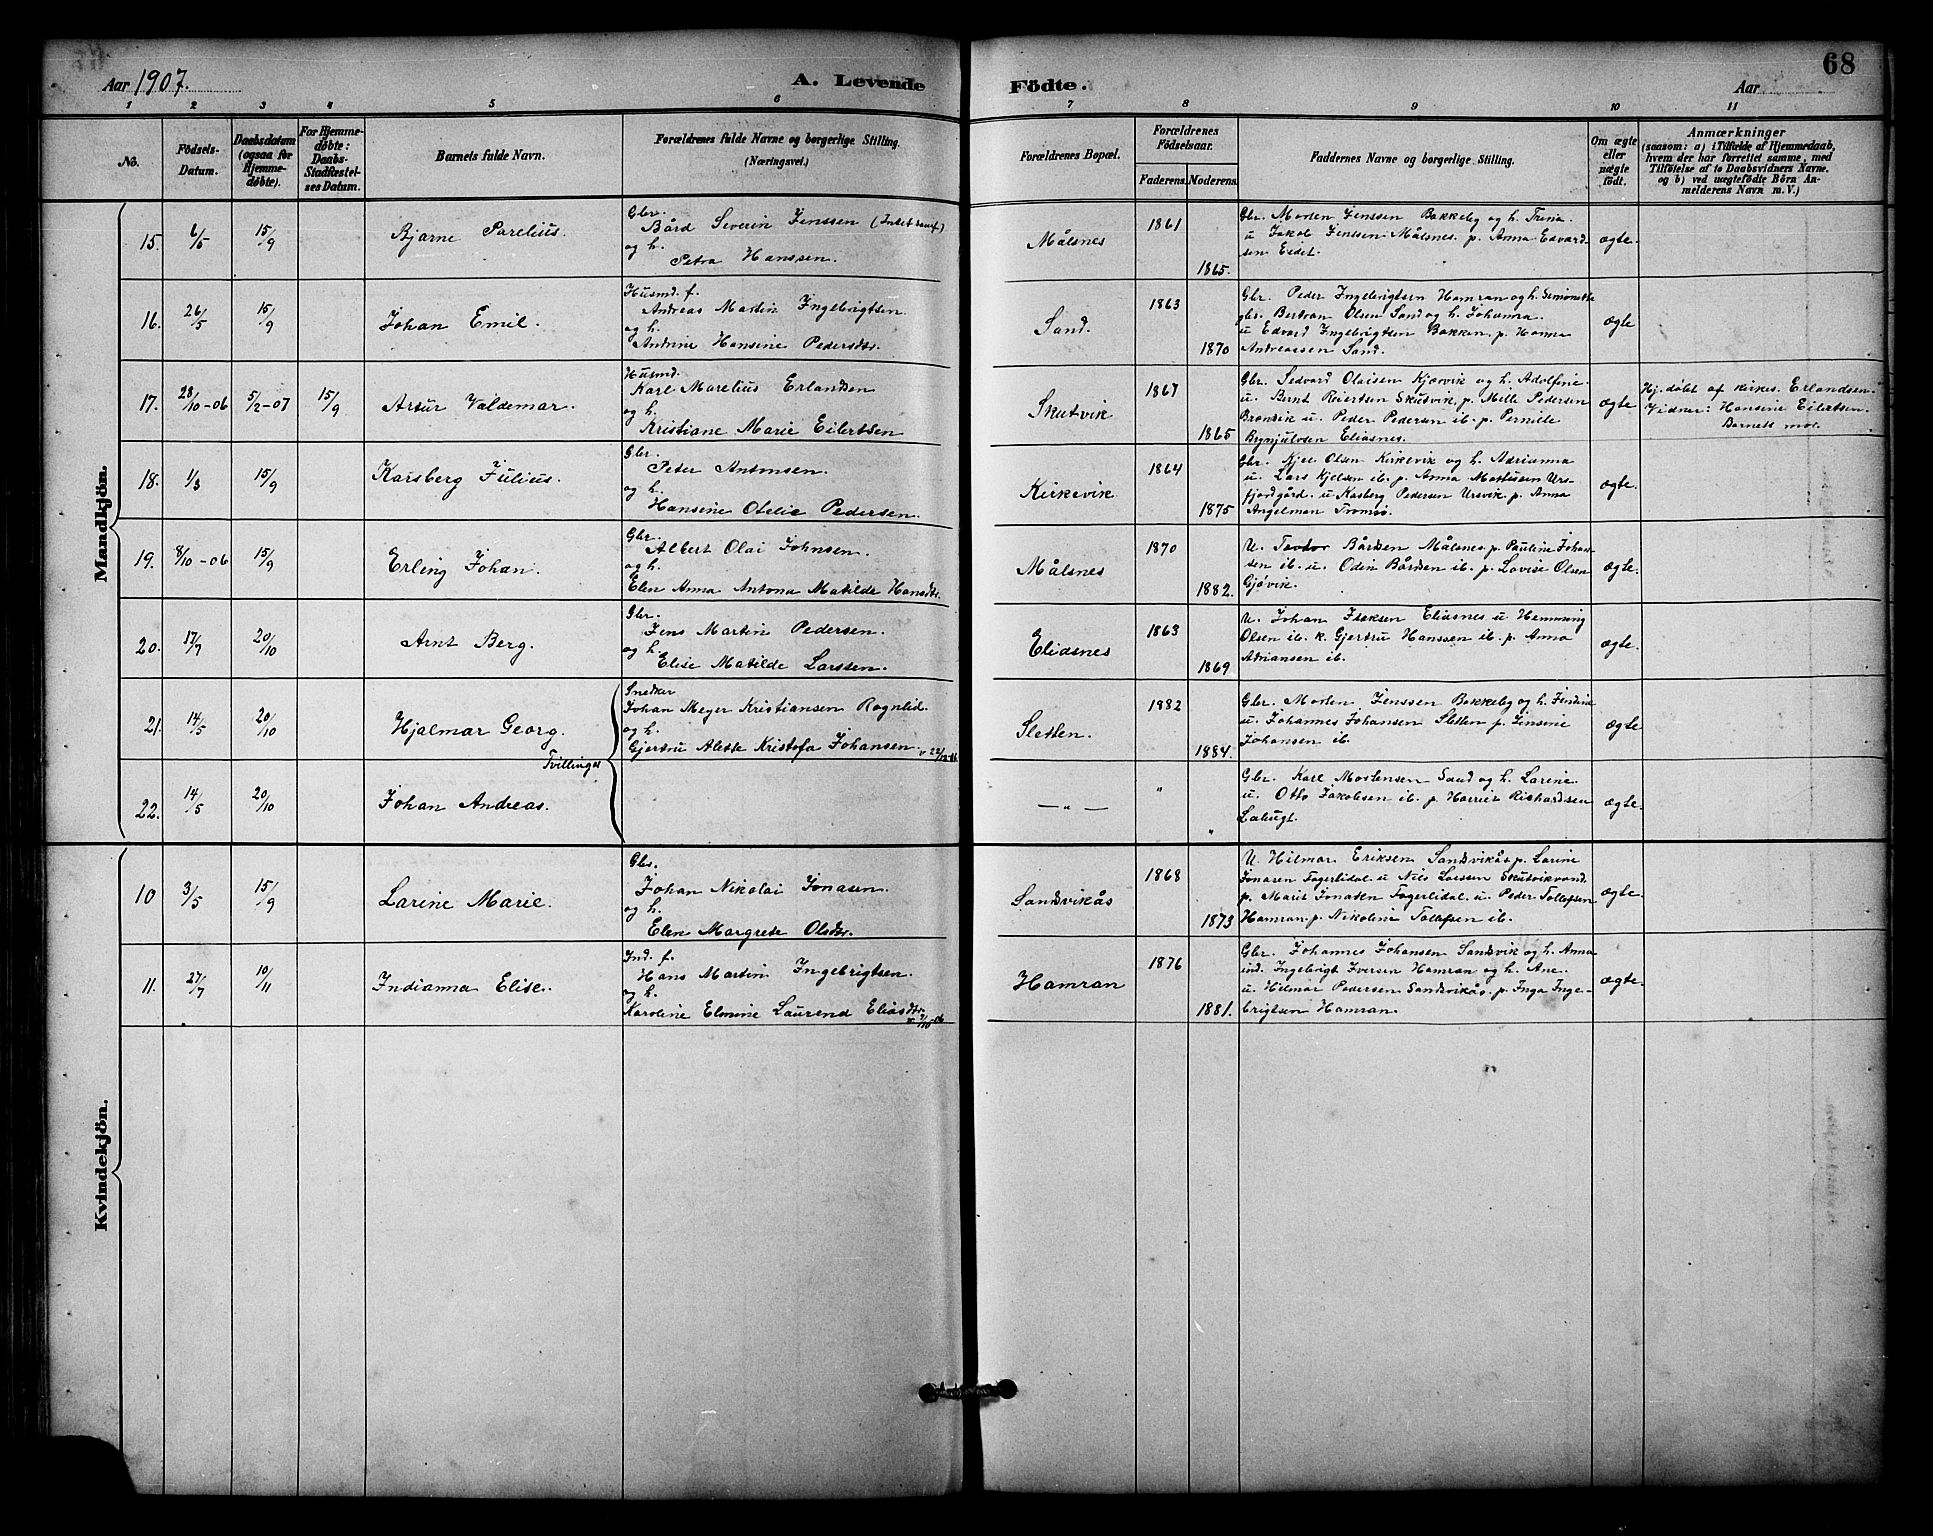 68
Aar 1907.
A. Levende Födte.
Aar
1 2 3 4 5 6 7 8 9 10 11
No.
Födsels-Datum.
Daabsdatum (ogsaa for Hjemme-döbte).
For Hjemme-döbte: Daabs-Stadfæstel-ses Datum.
Barnets fulde Navn.
Forældrenes fulde Navne og borgerlige Stilling.
(Næringsvei.)
Forældrenes Bopæl.
Forældrenes Födselsaar.
Faderens. Moderens.
Faddernes Navne og borgerlige Stilling.
Om ægte eller uægte födt.
Anmærkninger
(saasom: a) i Tilfælde af Hjemmedaab,
hvem der har forrettet samme, med
Tilföielse af to Daabsvidners Navne.
og b) ved uægtefödte Börn An-
melderens Navn m. V.)
Mandkjön.
15. 6/5 15/9 Bjarne Parelius.
Gbr.
Bård Severin Jenssen (Indst samf.)
og h.
Petra Hanssen.
Målsnes 1861 1865.
Gbr. Morten Jenssen Bakkeby og h. Trina.
u Jakob Jenssen Målsnes. p. Anna Edvard-
sen Eidet.
ægte.
16. 26/5 15/9 Johan Emil.
Husmd. f.
Andreas Martin Ingebrigtsen
og h.
Andrine Hansine Pedersdtr.
Sand. 1863 1870
Gbr. Peder Ingebrigtsen Hamran og h. Simonette
gbr. Bertran Olsen Sand og h. Johanna
u Edvard Ingebrigtsen Bakken. p. Hanna
Andreassen Sand.
ægte
17. 28/10-06 5/2-07 15/9 Artur Valdemar.
Husmd.
Karl Marelius Erlandsen
og h.
Kristiane Marie Eilertsen
Skutvik 1867 1865
Gbr. Sedvard Olaisen Kjærvik og h. Adolfine
u. Bernt Reiertsen Skutvik, p. Mille Pedersen
u. Peder Pedersen ib. p. Pernille
Brynjulvsen Eliasnes.
ægte
Hj. döbt af kirkes. Erlandsen.
Vidner: Hansine Eilertsen.
Barnets mor.
18. 1/3 15/9 Karsberg Julius.
Gbr.
Peter Antonsen.
og h.
Hansine Otelie Pedersen.
Kirkevik 1864 1875
Gbr. Kjel Olsen Kirkevik og h. Adrianna
u. Lars Kjelsen ib. p. Anna Mathisen Urs-
fjordgård. u Kasberg Pedersen Ursvik. p. Anna
Angelman Tromsö.
ægte.
19. 8/10-06 15/9 Erling Johan.
Gbr.
Albert Olai Johnsen.
og h.
Elen Anna Antona Matilde Hansdtr.
Målsnes 1870 1882.
U. Teodor Bårdsen Målsnes. p. Pauline Johan-
sen ib. u. Odin Bårdsen ib. p. Lovise Olsen
Gjövik.
ægte.
20. 17/7 20/10 Arnt Berg.
Gbr.
Jens Martin Pedersen.
og h.
Elise Matilde Larssen.
Eliasnes 1863 1869
U. Johan Isaksen Eliasnes u Hemming
Olsen ib. k. Gjertru Hanssen ib. p. Anna
Adriansen ib.
ægte.
21. 14/5 20/10 Hjalmar Georg.
Tvillinger
Snedker
Johan Meyer Kristiansen Rognlid.
og h.
Gjertru Alette Kristofa Johansen. v 22/12-06.
Sletten. 1882 1884.
Gbr. Morten Jenssen Bakkeby og h.
u. Johannes Johansen Sletten p. Jensine
Johansen ib.
ægte
22. 14/5 20/10 Johan Andreas.
— „ — „ „
Gbr. Karl Mortensen Sand og h. Larine.
u. Otto Jakobsen ib. p Harriet Rishardsen
ægte.
Kvindekjön.
10 3/5 15/9 Larine Marie.
Gbr.
Johan Nikolai Jonasen.
og h.
Elen Margrete Olsdtr.
Sandvikås 1868 1873
U. Hilmar Eriksen Sandvikås. p. Larine
Jonasen Fagerlidal. u Nils Larssen Skutvikvand
p. Marit Jonasen Fagerlidal. u. Peder Tollefsen
Hamran. p. Nikoline Tollefsen ib.
ægte.
11. 27/7 10/11 Indianna Elise.
Ind. f.
Hans Martin Ingebrigtsen.
og h.
Karoline Elmine Laurend Eliasdtr. v. 7/10-06
Hamran 1876 1881.
Gbr. Johannes Johansen Sandvik og h. Anna
ind. Ingebrigt Iversen Hamran og h. Ane.
u. Hilmar Pedersen Sandvikås. p. Inga Inge-
brigtsen Hamran.
ægte.